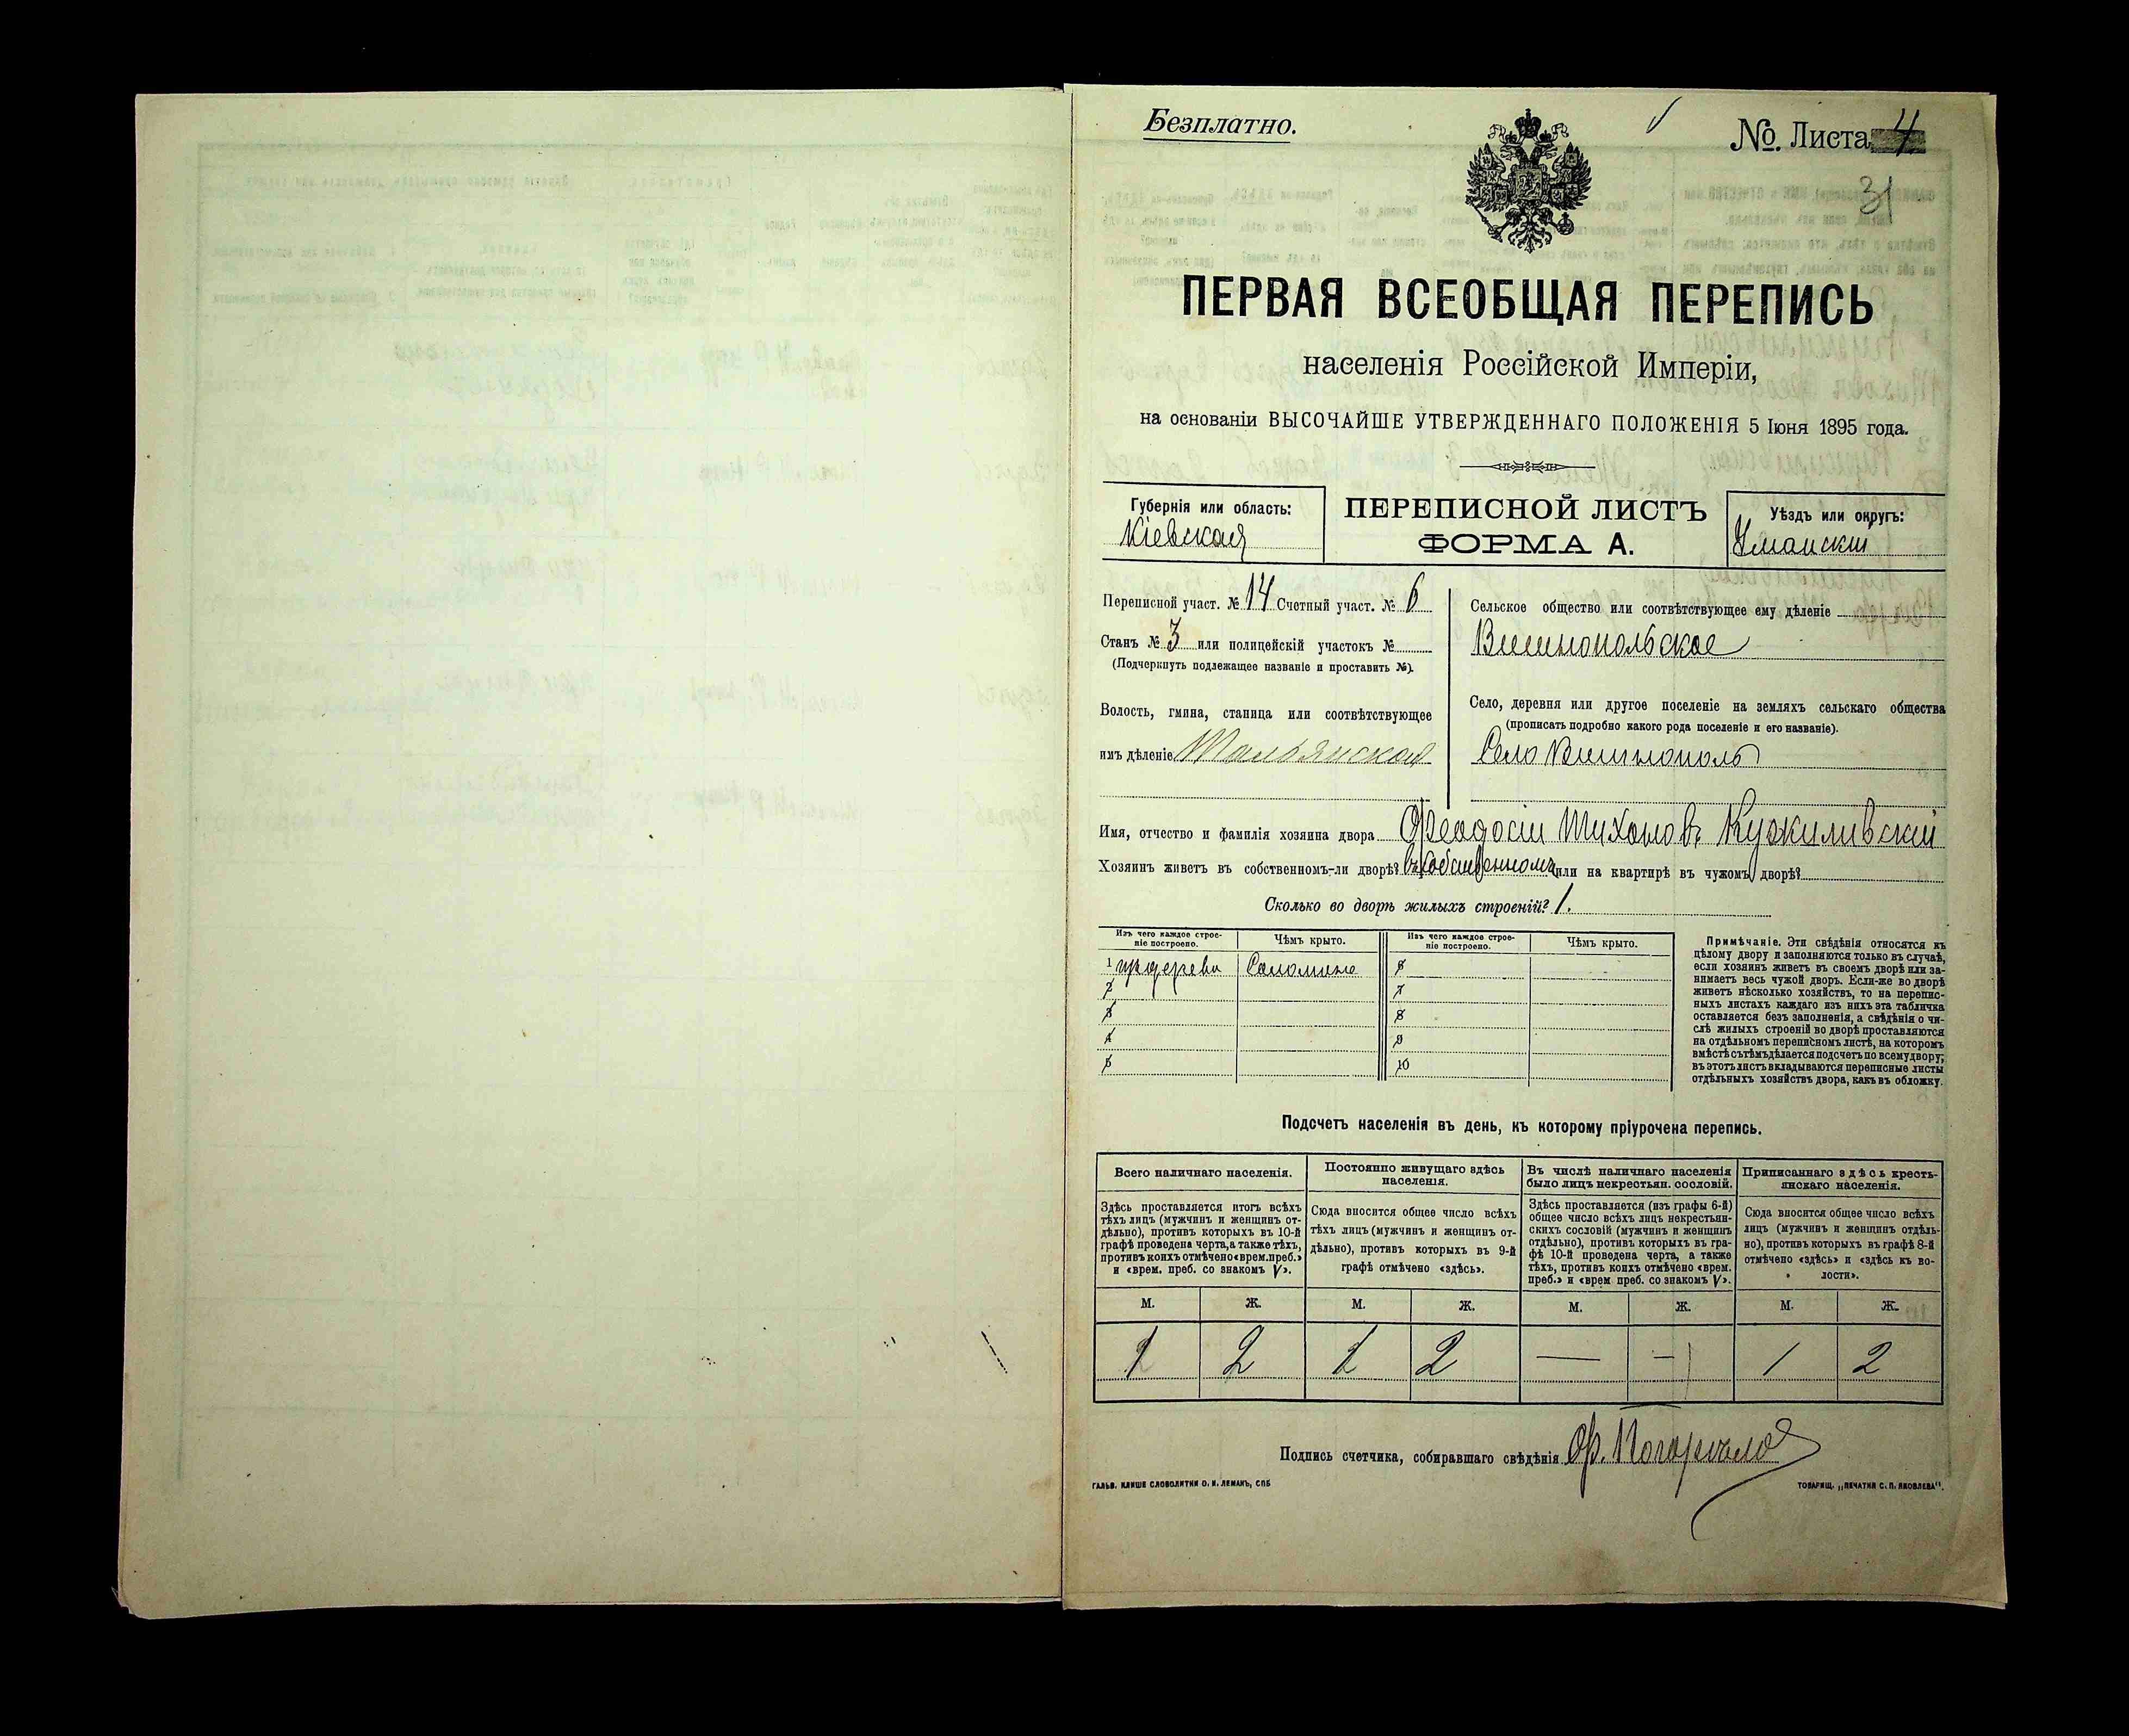 Безплатно.
№. Листа 4
31
ПЕРВАЯ ВСЕОБЩАЯ ПЕРЕПИСЬ
населенія Россійской Имперіи,
на основаніи ВЫСОЧАЙШЕ УТВЕРЖДЕННАГО ПОЛОЖЕНІЯ 5 Іюня 1895 года.
Губернія или область:
Кіевская
ПЕРЕПИСНОЙ ЛИСТЪ
ФОРМА А.
Уѣздъ или округъ:
Уманскій
Переписной участ. № 14 Счетный участ. № 6
Станъ № 3 или полицейскій участокъ №
(Подчеркнуть подлежащее названіе и проставить №).
Волость, гмина, станица или соотвѣтствующее
имъ дѣленіе Тальянская
Сельское общество или соотвѣтствующее ему дѣленіе
Вишнопольское
Село, деревня или другое поселеніе на земляхъ сельскаго общества
(прописать подробно какого рода поселеніе и его названіе).
Село Вишнополь
Имя, отчество и фамилія хозяина двора Феодосій Тихоновъ Кужиливскій
Хозяинъ живетъ въ собственномъ-ли дворѣ? въ собственномъ или на квартирѣ въ чужомъ дворѣ?
Сколько во дворѣ жилыхъ строеній? 1.
Изъ чего каждое строе-
ніе построено.
Чѣмъ крыто.
Изъ чего каждое строе-
ніе построено.
Чѣмъ крыто.
1 изъ дерева Соломою 6
2 7
3 8
4 9
5 10
Примѣчаніе. Эти свѣдѣнія относятся къ
цѣлому двору и заполняются только въ случаѣ,
если хозяинъ живетъ въ своемъ дворѣ или за-
нимаетъ весь чужой дворъ. Если-же во дворѣ
живетъ нѣсколько хозяйствъ, то на перепис-
ныхъ листахъ каждаго изъ нихъ эта табличка
оставляется безъ заполненія, а свѣдѣнія о чи-
слѣ жилыхъ строеній во дворѣ проставляются
на отдѣльномъ переписномъ листѣ, на которомъ
вмѣстѣ съ тѣмъ дѣлается подсчетъ по всему двору;
въ этотъ листъ вкладываются переписные листы
отдѣльныхъ хозяйствъ двора, какъ въ обложку.
Подсчетъ населенія въ день, къ которому пріурочена перепись.
Всего наличнаго населенія.
Здѣсь проставляется итогъ всѣхъ
тѣхъ лицъ (мужчинъ и женщинъ от-
дѣльно), противъ которыхъ въ 10-й
графѣ проведена черта, а также тѣхъ,
противъ коихъ отмѣчено «врем. преб.»
и «врем. преб. со знакомъ V».
Постоянно живущаго здѣсь
населенія.
Сюда вносится общее число всѣхъ
тѣхъ лицъ (мужчинъ и женщинъ от-
дѣльно), противъ которыхъ въ 9-й
графѣ отмѣчено «здѣсь».
Въ числѣ наличнаго населенія
было лицъ некрестьян. сословій.
Здѣсь проставляется (изъ графы 6-й)
общее число всѣхъ лицъ некрестьян-
скихъ сословій (мужчинъ и женщинъ
отдѣльно), противъ которыхъ въ гра-
фѣ 10-й проведена черта, а также
тѣхъ, противъ коихъ отмѣчено «врем.
преб.» и «врем преб. со знакомъ V».
Приписаннаго здѣсь кресть-
янскаго населенія.
Сюда вносится общее число всѣхъ
лицъ (мужчинъ и женщинъ отдѣль-
но), противъ которыхъ въ графѣ 8-й
отмѣчено «здѣсь» и «здѣсь къ во-
лости».
М. Ж. М. Ж. М. Ж. М. Ж.
1 2 1 2 — — 1 2
Подпись счетчика, собиравшаго свѣдѣнія
ГАЛЬВ. КЛИШЕ СЛОВОЛИТНИ О. И. ЛЕМАНЪ, СПБ
ТОВАРИЩ. „ПЕЧАТНЯ С. П. ЯКОВЛЕВА".